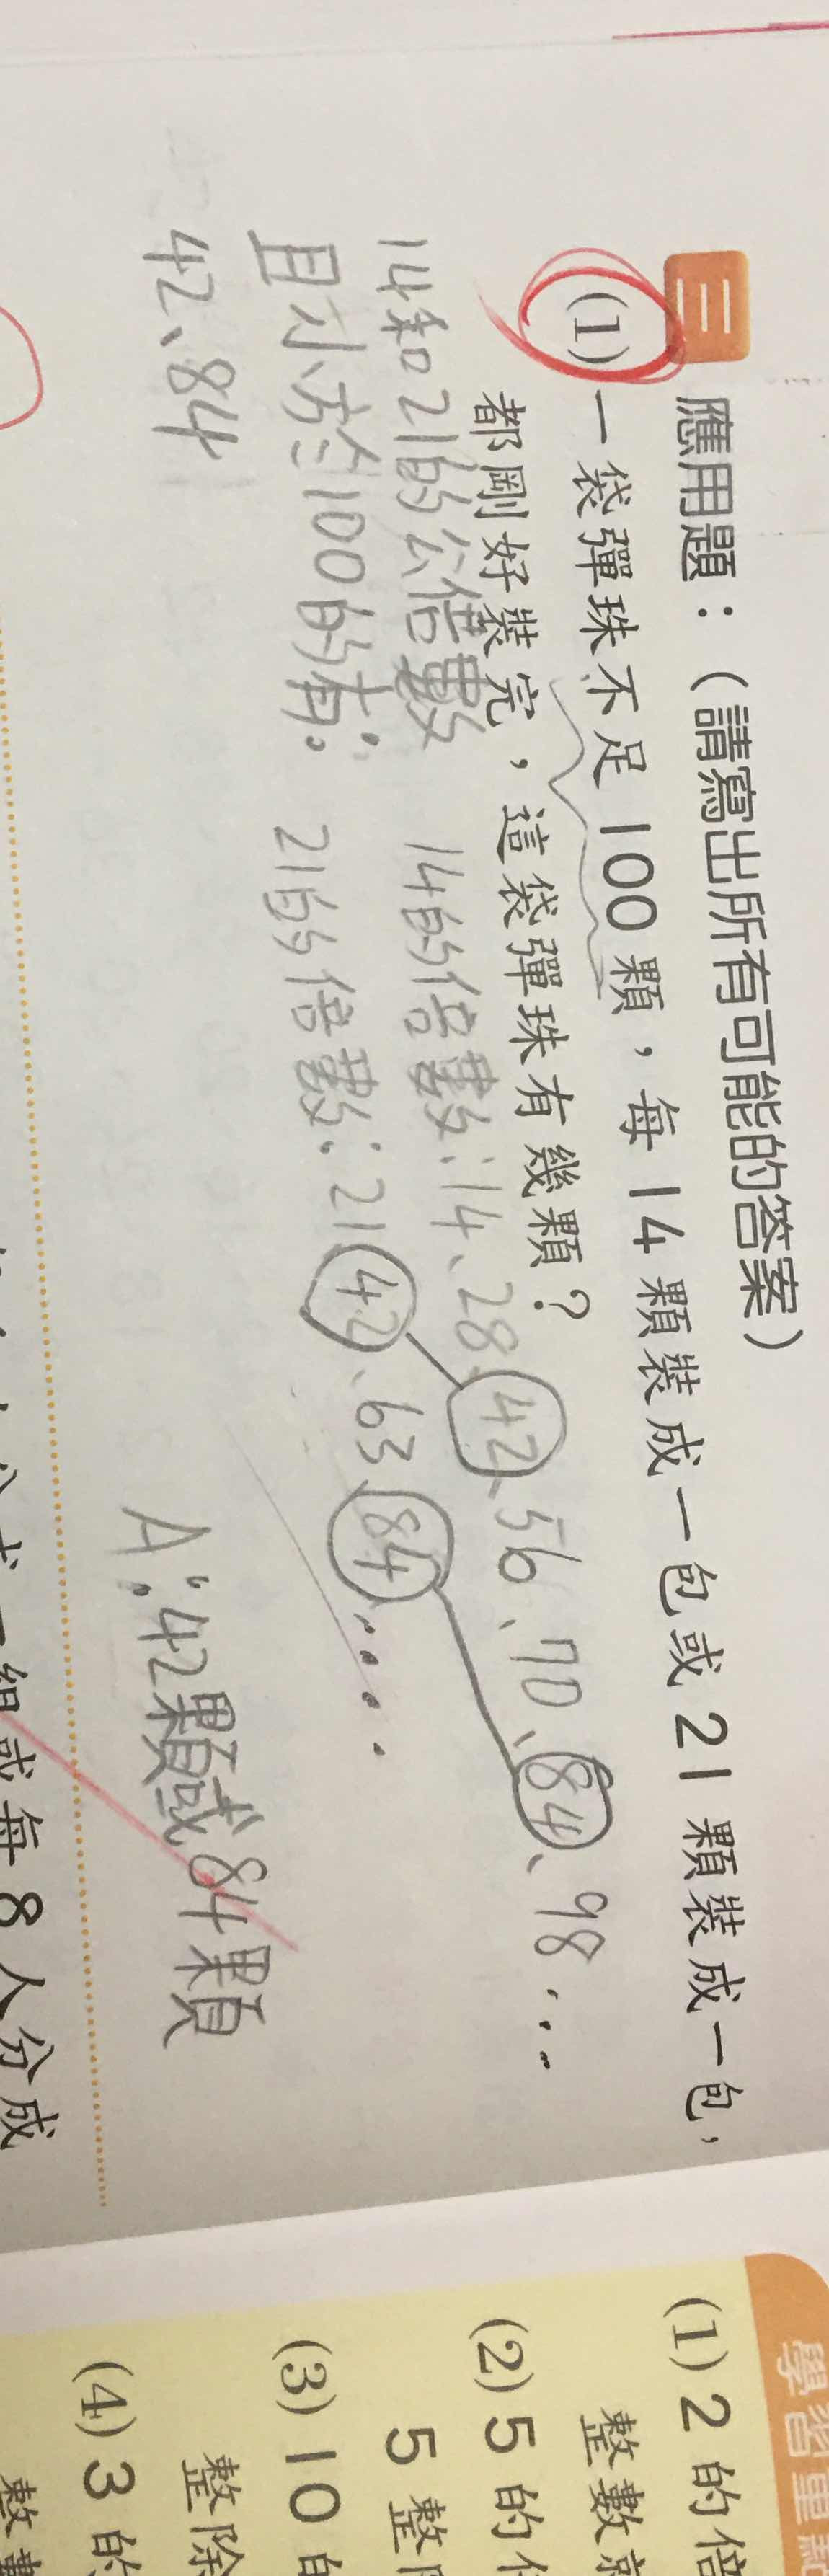 三 應用題：（請寫出所有可能的答案）
(1) 一袋彈珠不足100顆，每14顆裝成一包或21顆裝成一包，
都剛好裝完，這袋彈珠有幾顆？
14和21的公倍數
且小於100的有:
42、84
14的倍數:14、28、42、56、70、84、98...
21的倍數:21、42、63、84...
A:42顆或84顆
組或每8人分成
(1) 2的倍
整數
(2) 5的
5整
(3) 10
整除
(4) 3的
學習重